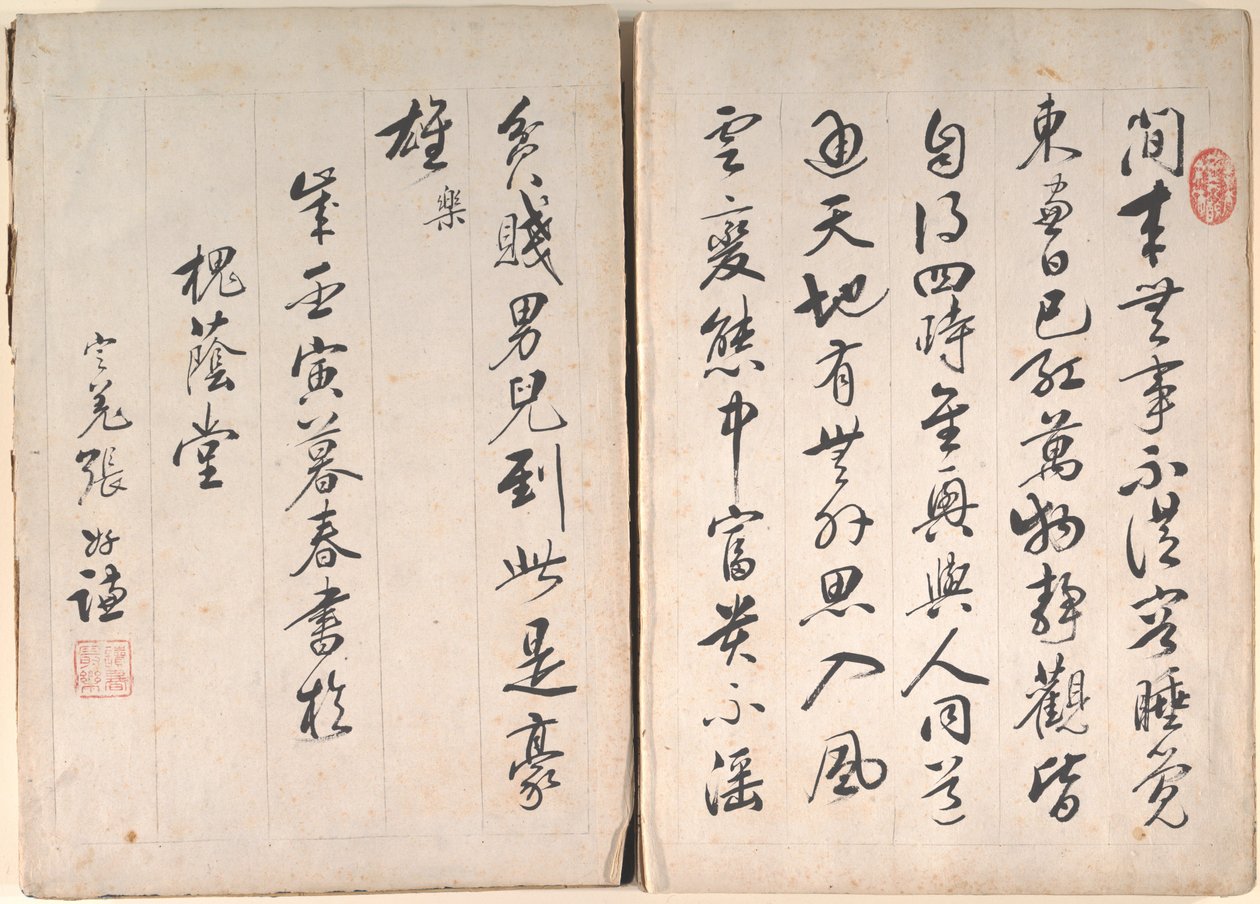 閒来無事不從容睡覺
東窗日已紅萬物靜觀皆
自得四時佳興與人同道
通天地有無外思入風
雲變態中富貴不淫
貧賤男兒到此是豪
雄 樂
歲寅暮春書於
槐蔭堂
定羌張好謙